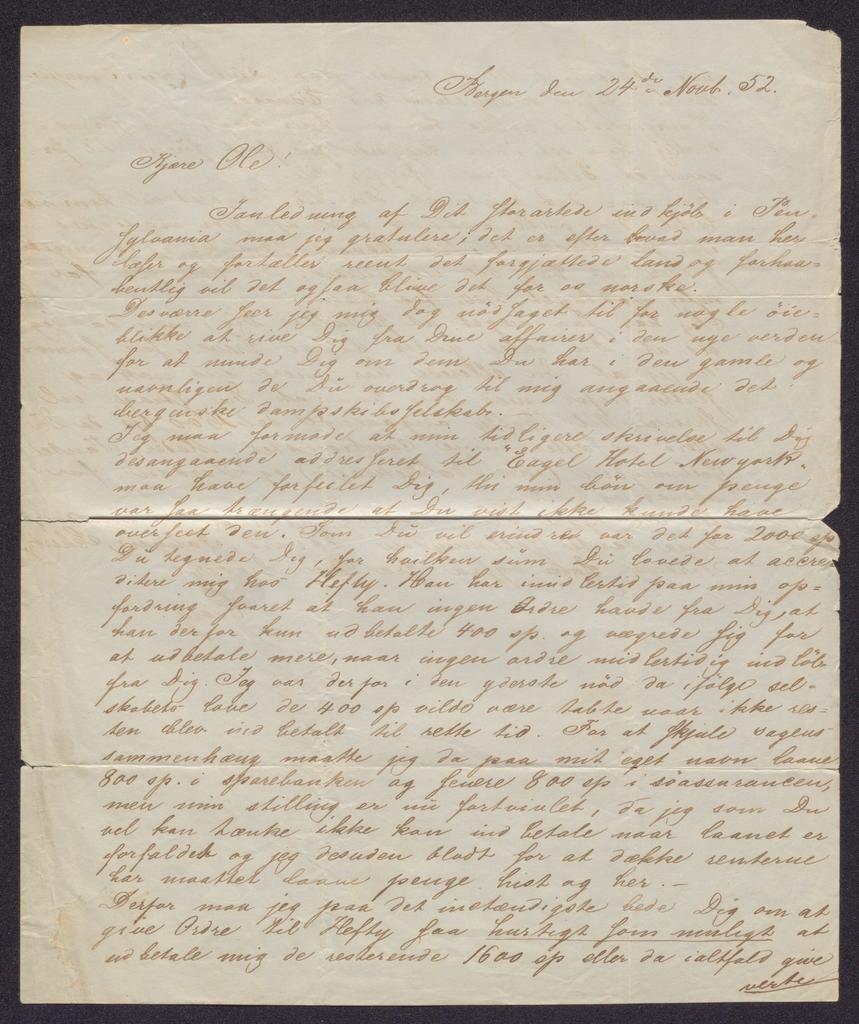 Bergen den 24de Novb. 52.
Kjære Ole!
Ianledning af Dit storartede indkjöb i Pen-
sylvania maa jeg gratulere; det er efter hvad man her
læser og fortæller reent det forgjættede land og forhaa-
bentlig vil det ogsaa blive det for os norske.
Desværre seer jeg mig dog nödsaget til for nogle öie-
blikke at rive Dig fra Dine affairer i den nye verden
for at minde Dig om dem Du har i den gamle og
navnligen de Du overdrog til mig angaaende det
bergenske dampskibsselskab. —
Jeg maa formode at min tidligere skrivelse til Dig
desangaaende addresseret til "Eagel Hotel Newyork"
maa have forfeilet Dig, thi min bön om penge
var saa trængende at Du vist ikke kunde have
overseet den. Som Du vil erindre var det for 2000 sp
Du tegnede Dig, for hvilken süm Du lovede at accre-
ditere mig hos Hefty. Han har imidlertid paa min op-
fordring svaret at han ingen Ordre havde fra Dig, at
han derfor kun udbetalte 400 sp. og vægrede sig for
at udbetale mere, naar ingen ordre midlertidig indlöb
fra Dig. Jeg var derfor i den yderste nöd da ifölge sel-
skabets love de 400 sp vilde være tabte naar ikke res-
ten blev indbetalt til rette tid. For at skjule sagens
sammenhæng maatte jeg da paa mit eget navn laane
800 sp. i sparebanken og senere 800 sp i söassurancen,
men min stilling er nu fortvivlet, da jeg som Du
vel kan tænke ikke kan indbetale naar laanet er
forfaldet og jeg desuden blodt for at dække renterne
har maattet laane penge hist og her. —
Derfor maa jeg paa det instændigste bede Dig om at
give Ordre til Hefty saa hurtigt som muligt at
udbetale mig de resterende 1600 sp eller da ialtfald give
verte